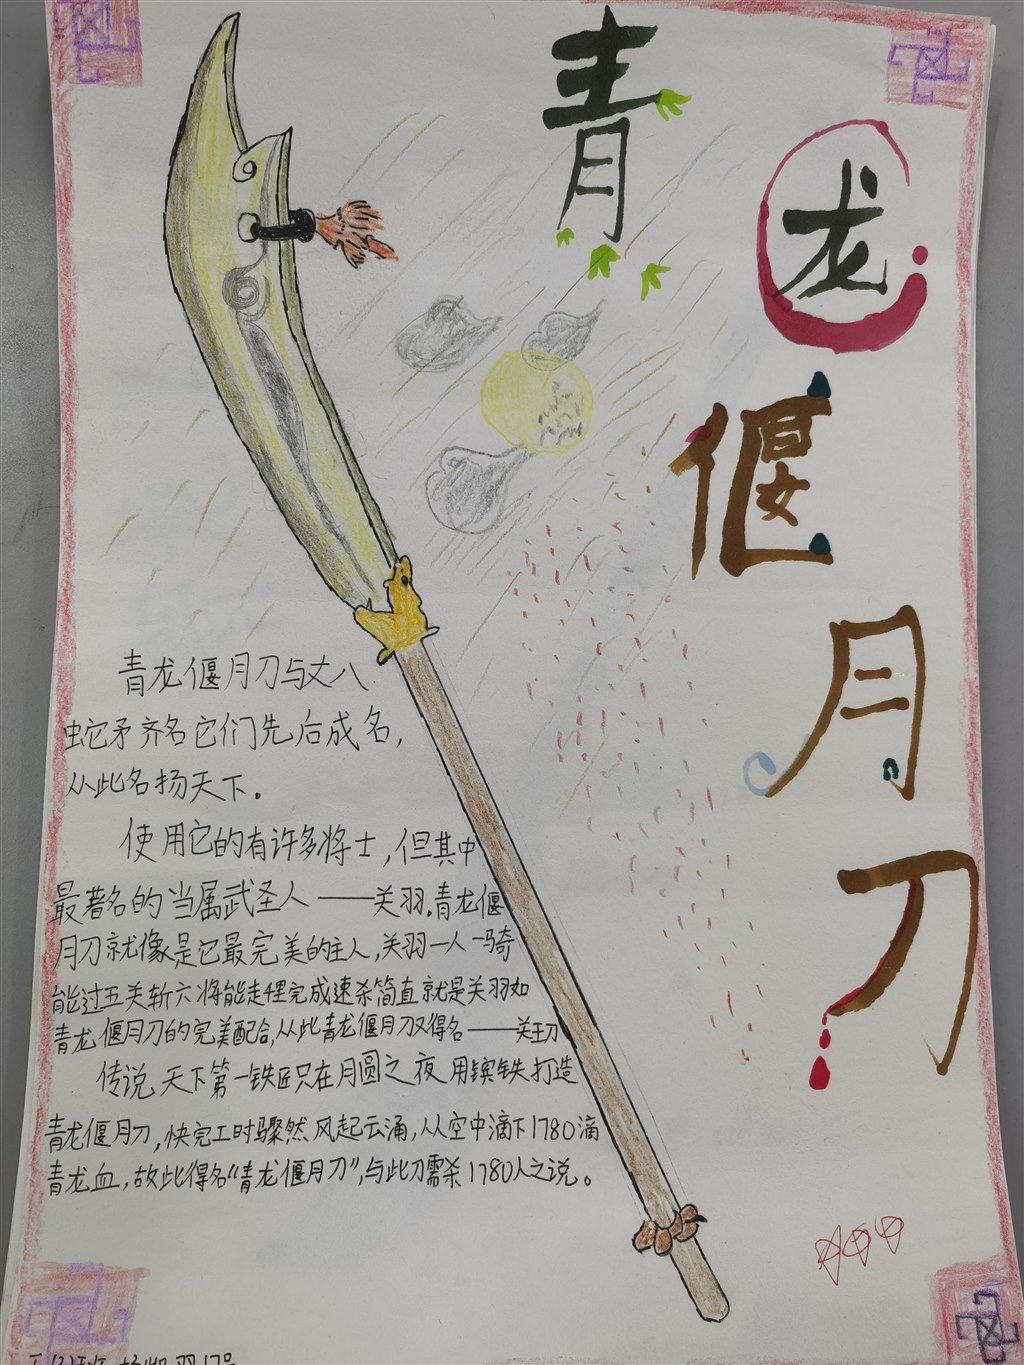 青龙偃月刀
青龙偃月刀与丈八
蛇矛齐名它们先后成名，
从此名扬天下。
使用它的有许多将士，但其中
最著名的当属武圣人——关羽。青龙偃
月刀就像是它最完美的主人，关羽一人一骑
能过五关斩六将能走程完成速杀简直就是关羽如
青龙偃月刀的完美配合，从此青龙偃月刀又得名——关王刀
传说，天下第一铁匠只在月圆之夜用镔铁打造
青龙偃月刀，快完工时骤然风起云涌，从空中滴下1780滴
青龙血，故此得名“青龙偃月刀”，与此刀需杀1780人之说。